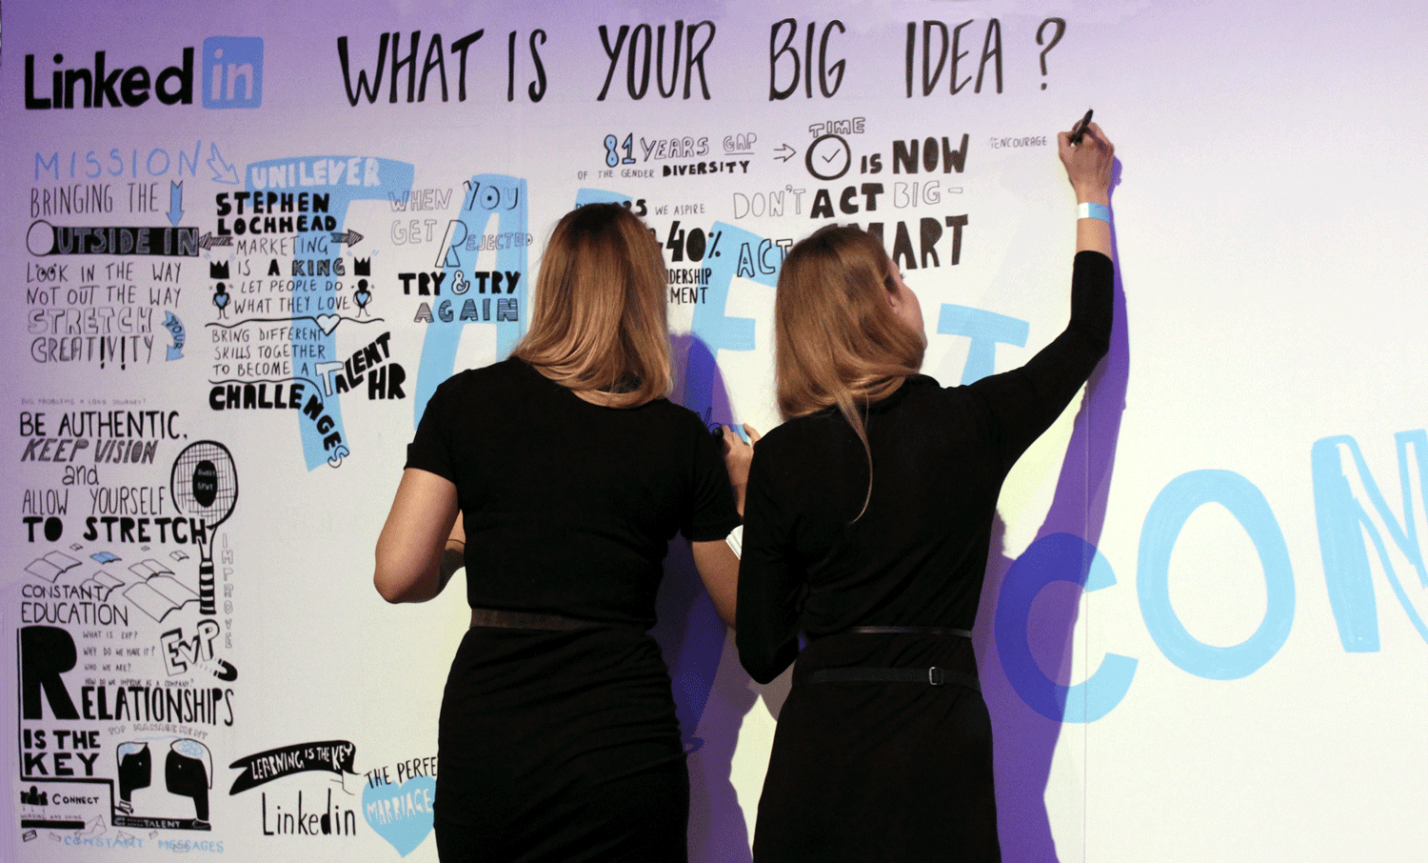 Linked in
WHAT IS YOUR BIG IDEA?
MISSION
BRINGING THE
OUTSIDE IN
LOOK IN THE WAY
NOT OUT THE WAY
STRETCH
YOUR
CREATIVITY
UNILEVER
STEPHEN
LOCHHEAD
MARKETING
IS A KING
LET PEOPLE DO
WHAT THEY LOVE
BRING DIFFERENT
SKILLS TOGETHER
TO BECOME A TALENT
HR
CHALLENGES
WHEN YOU
GET REJECTED
TRY & TRY
AGAIN
81 YEARS GAP
OF THE GENDER DIVERSITY
WE ASPIRE
40%
TIME
IS NOW
DON'T ACT BIG-
ACT SMART
ENCOURAGE
TALENT
CON
BIG PROBLEMS A LONG JOURNEY?
BE AUTHENTIC,
KEEP VISION
and
ALLOW YOURSELF
TO STRETCH
IMPROVE
CONSTANT
EDUCATION
WHAT IS EVP?
WHY DO WE HAVE IT?
WHO WE ARE?
HOW DO WE IMPROVE AS A COMPANY?
EVP
RELATIONSHIPS
IS THE
KEY
TOP MANAGEMENT
CONNECT
TALENT
CONSTANT MESSAGES
LEARNING IS THE KEY
Linkedin
THE PERFE
MARRIAGE